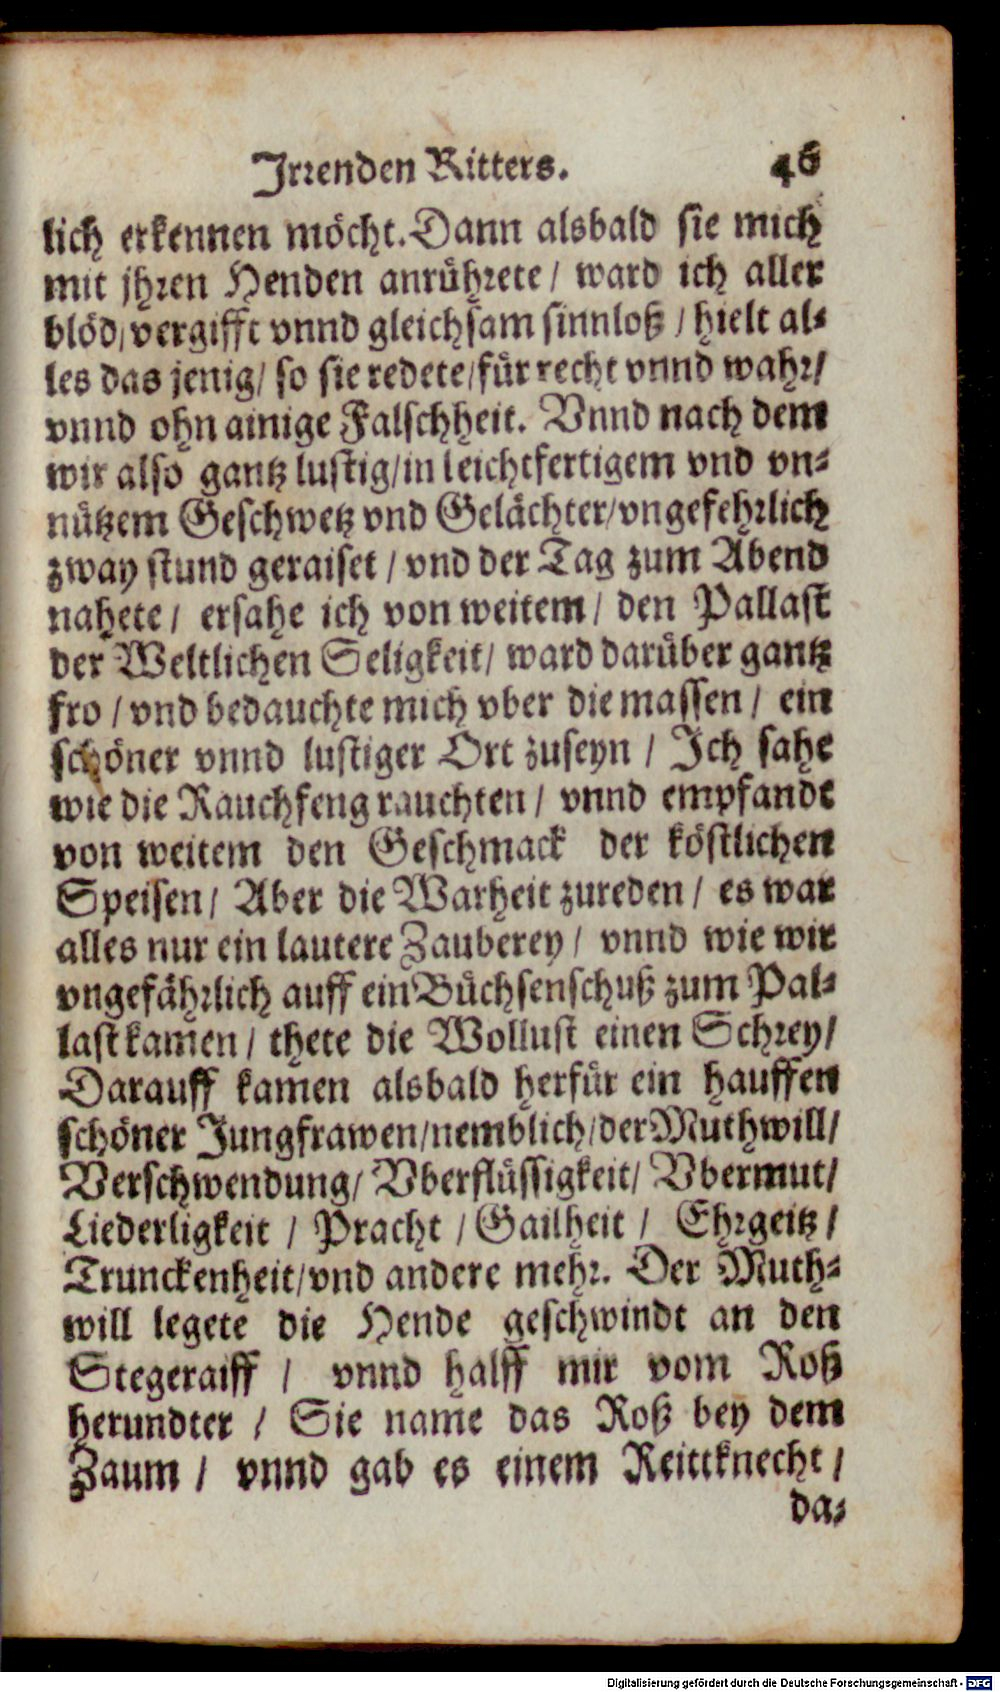 Irrenden Ritters. 46
lich erkennen möcht. Dann alsbald sie mich
mit jhren Henden anrührete / ward ich aller
blöd / vergifft vnnd gleichsam sinnloß / hielt al-
les das jenig / so sie redete / für recht vnnd wahr /
vnnd ohn ainige Falschheit. Vnnd nach dem
wir also gantz lustig / in leichtfertigem vnd vn-
nützem Geschwetz vnd Gelächter / vngefehrlich
zway stund geraiset / vnd der Tag zum Abend
nahete / ersahe ich von weitem / den Pallast
der Weltlichen Seligkeit / ward darüber gantz
fro / vnd bedauchte mich vber die massen / ein
schöner vnnd lustiger Ort zuseyn / Ich sahe
wie die Rauchfeng rauchten / vnnd empfande
von weitem den Geschmack der köstlichen
Speisen / Aber die Warheit zureden / es war
alles nur ein lautere Zauberey / vnnd wie wir
vngefährlich auff ein Büchsenschuß zum Pal-
last kamen / thete die Wollust einen Schrey /
Darauff kamen alsbald herfür ein hauffen
schöner Jungfrawen / nemblich / der Muthwill /
Verschwendung / Vberflüssigkeit / Vbermut /
Liederligkeit / Pracht / Gailheit / Ehrgeitz /
Trunckenheit / vnd andere mehr. Der Muth-
will legete die Hende geschwindt an den
Stegeraiff / vnnd halff mir vom Roß
herundter / Sie name das Roß bey dem
Zaum / vnnd gab es einem Reittknecht /
da-
Digitalisierung gefördert durch die Deutsche Forschungsgemeinschaft - DFG